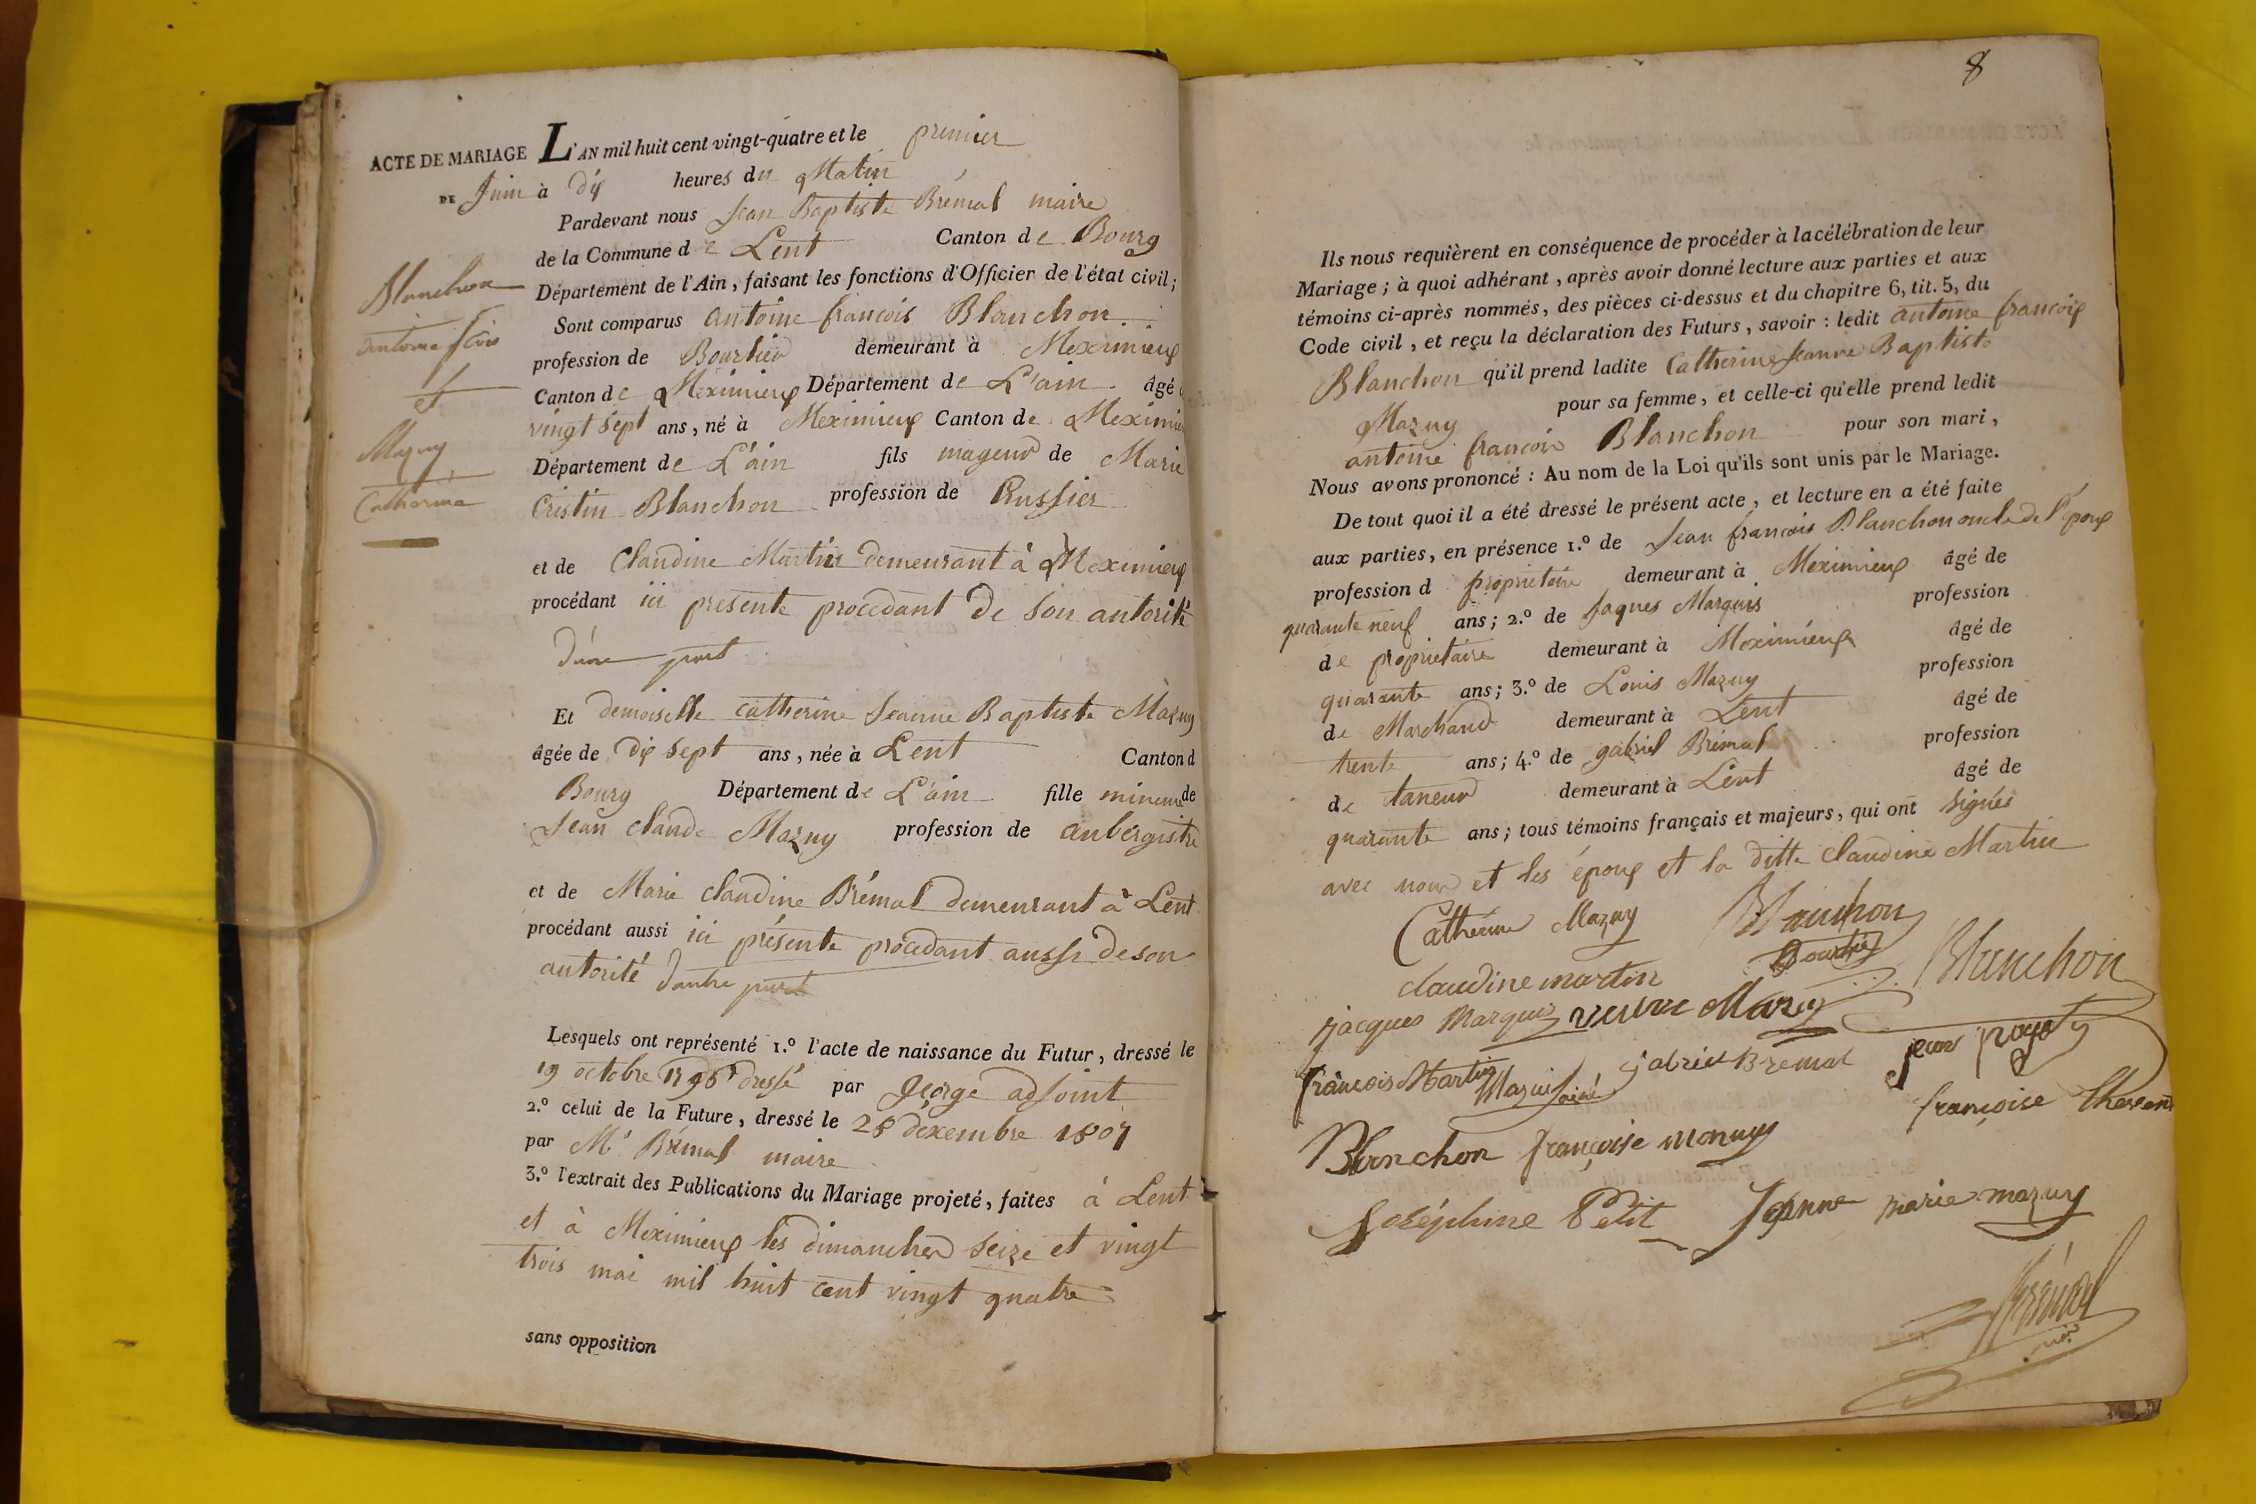 ACTE DE MARIAGE L'AN mil huit cent vingt-quatre et le premier
DE Juin à dix heures du Matin
Pardevant nous Jean Baptiste Brémal maire
de la Commune de Lent Canton de Bourg
Département de l'Ain, faisant les fonctions d'Officier de l'état civil;
Sont comparus antoine françois Blanchon
profession de Bourlier demeurant à Meximieux
Canton de Meximieux Département de L'ain âgé
vingt sept ans, né à Meximieux Canton de Meximieu
Département de L'ain fils mageur de Marie
Cristin Blanchon profession de
et de Claudine Martin demeurant à Meximieux
procédant ici presente procedant de son autorité
d'une part
Et demoiselle catherine Jeanne Baptiste Mazuy
âgée de dix sept ans, née à Lent Canton d
Bourg Département de L'ain fille mineure de
Jean claude Mazuy profession de aubergistre
et de Marie claudine Brémal demeurant à Lent
procédant aussi ici présente procedant aussi de son
autorité d'autre part
Lesquels ont représenté 1.º l'acte de naissance du Futur, dressé le
19 octobre 1796 dressé par george adjoint
2.º celui de la Future, dressé le 28 décembre 1807
par Mr Brémal maire
3.º l'extrait des Publications du Mariage projeté, faites à Lent
et à Meximieux les dimanches seize et vingt
trois mai mil huit cent vingt quatre
sans opposition
Blanchon
antoine fcois
et
Mazuy
Catherine
8
Ils nous requièrent en conséquence de procéder à la célébration de leur
Mariage; à quoi adhérant, après avoir donné lecture aux parties et aux
témoins ci-après nommés, des pièces ci-dessus et du chapitre 6, tit. 5, du
Code civil, et reçu la déclaration des Futurs, savoir: ledit antoine françois
Blanchon qu'il prend ladite Catherine Jeanne Baptiste
Mazuy pour sa femme, et celle-ci qu'elle prend ledit
antoine françois Blanchon pour son mari,
Nous avons prononcé: Au nom de la Loi qu'ils sont unis par le Mariage.
De tout quoi il a été dressé le présent acte, et lecture en a été faite
aux parties, en présence 1.º de Jean françois Blanchon oncle de l'époux
profession d propriétaire demeurant à Meximieux âgé de
quarante neuf ans; 2.º de Jaques Marquis profession
de propriétaire demeurant à Meximieux âgé de
quarante ans; 3.º de Louis Mazuy profession
de Marchand demeurant à Lent âgé de
trente ans; 4.º de gabriel Brémal profession
de taneur demeurant à Lent âgé de
quarante ans; tous témoins français et majeurs, qui ont signés
avec nous et les époux et la ditte claudine Martin
Catherine Mazuy Blanchon
Bourlier
claudine martin Blanchon
jacques marquis veuve Mazuy
jean
françois Martin Mazui ainé gabriel Bremal
françoise
Blanchon françoise monuy
Joséphine Petit Jeanne marie mazuy
Brémal